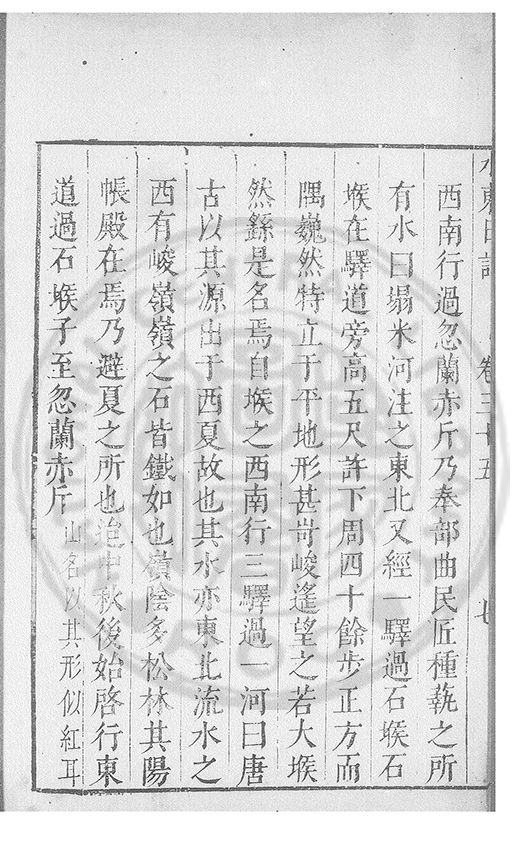 水東日記 卷三十五 七
西南行過忽蘭赤斤乃奉部曲民匠種蓺之所
有水曰塌米河注之東北又經一驛過石堠石
堠在驛道旁高五尺許下周四十餘步正方而
隅巍然特立于平地形甚奇峻遙望之若大堠
然繇是名焉自堠之西南行三驛過一河曰唐
古以其源出于西夏故也其水亦東北流水之
西有峻嶺嶺之石皆鐵如也嶺陰多松林其陽
帳殿在焉乃避夏之所也迨中秋後始啓行東
道過石堠子至忽蘭赤斤山名以其形似紅耳